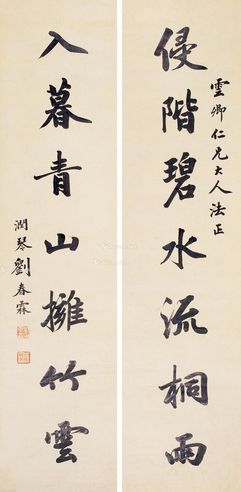 雲卿仁兄大人法正
侵階碧水流桐雨
入暮青山擁竹雲
潤琴劉春霖